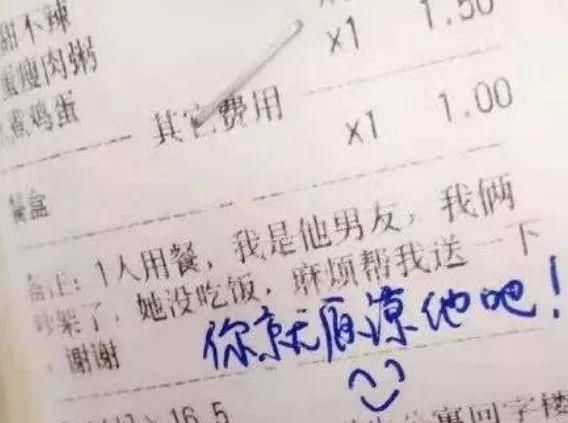 甜不辣 1.50
蛋瘦肉粥 x1
煮鸡蛋 x1 1.00
其它费用
餐盒
备注：1人用餐，我是他男友，我俩
吵架了，她没吃饭，麻烦帮我送一下
，谢谢
你就原谅他吧！
16.5
寓回字楼